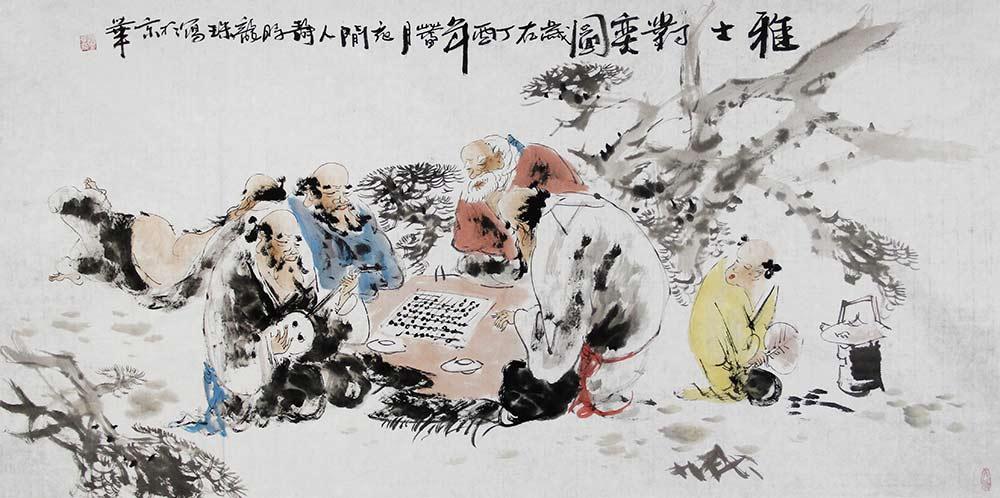 雅士對奕圖歲在丁酉年月間人静時龍珠寫於京華